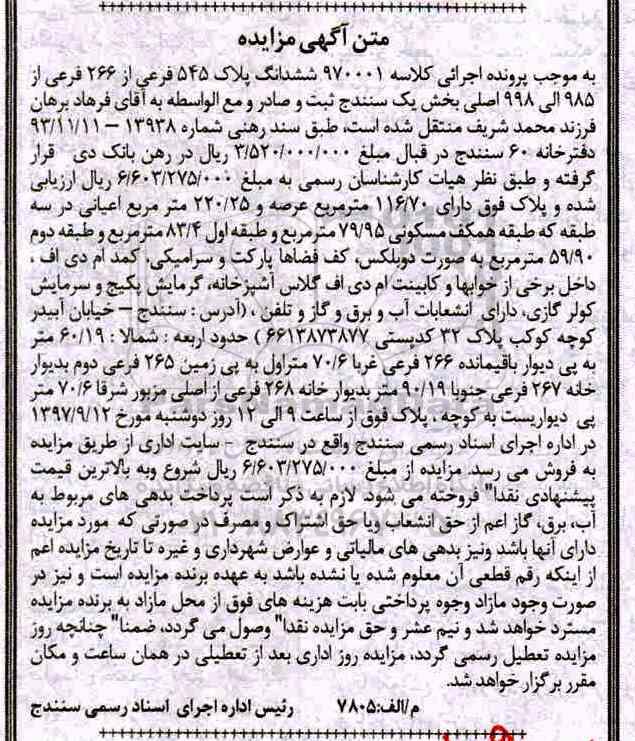 متن آگهی مزایده
به موجب پرونده اجرائی کلاسه ۹۷۰۰۰۱ ششدانگ پلاک ۵۴۵ فرعی از ۲۶۶ فرعی از
۹۸۵ الی ۹۹۸ اصلی بخش یک سنندج ثبت و صادر و مع الواسطه به آقای فرهاد برهان
فرزند محمد شریف منتقل شده است، طبق سند رهنی شماره ۱۳۹۳۸ – ۹۳/۱۱/۱۱
دفترخانه ۶۰ سنندج در قبال مبلغ ۳/۵۲۰/۰۰۰/۰۰۰ ریال در رهن بانک دی قرار
گرفته و طبق نظر هیات کارشناسان رسمی به مبلغ ۶/۶۰۳/۲۷۵/۰۰۰ ریال ارزیابی
شده و پلاک فوق دارای ۱۱۶/۷۰ مترمربع عرصه و ۲۲۰/۲۵ متر مربع اعیانی در سه
طبقه که طبقه همکف مسکونی ۷۹/۹۵ مترمربع و طبقه اول ۸۳/۴ مترمربع و طبقه دوم
۵۹/۹۰ مترمربع به صورت دوبلکس، کف فضاها پارکت و سرامیکی، کمد ام دی اف ،
داخل برخی از خوابها و کابینت ام دی اف گلاس آشپزخانه، گرمایش پکیج و سرمایش
کولر گازی، دارای انشعابات آب و برق و گاز و تلفن ، (آدرس : سنندج – خیابان آبیدر
کوچه کوکب پلاک ۳۲ کدپستی ۶۶۱۳۸۷۳۸۷۷ ) حدود اربعه : شمالا : ۶۰/۱۹ متر
به پی دیوار باقیمانده ۲۶۶ فرعی غربا ۷۰/۶ متراول به پی زمین ۲۶۵ فرعی دوم بدیوار
خانه ۲۶۷ فرعی جنوبا ۹۰/۱۹ متر بدیوار خانه ۲۶۸ فرعی از اصلی مزبور شرقا ۷۰/۶ متر
پی دیواریست به کوچه ، پلاک فوق از ساعت ۹ الی ۱۲ روز دوشنبه مورخ ۱۳۹۷/۹/۱۲
در اداره اجرای اسناد رسمی سنندج واقع در سنندج - سایت اداری از طریق مزایده
به فروش می رسد. مزایده از مبلغ ۶/۶۰۳/۲۷۵/۰۰۰ ریال شروع وبه بالاترین قیمت
پیشنهادی نقدا" فروخته می شود. لازم به ذکر است پرداخت بدهی های مربوط به
آب، برق، گاز اعم از حق انشعاب ویا حق اشتراک و مصرف در صورتی که مورد مزایده
دارای آنها باشد ونیز بدهی های مالیاتی و عوارض شهرداری و غیره تا تاریخ مزایده اعم
از اینکه رقم قطعی آن معلوم شده یا نشده باشد به عهده برنده مزایده است و نیز در
صورت وجود مازاد وجوه پرداختی بابت هزینه های فوق از محل مازاد به برنده مزایده
مسترد خواهد شد و نیم عشر و حق مزایده نقدا" وصول می گردد، ضمنا" چنانچه روز
مزایده تعطیل رسمی گردد، مزایده روز اداری بعد از تعطیلی در همان ساعت و مکان
مقرر برگزار خواهد شد.
م/الف: ۷۸۰۵ رئیس اداره اجرای اسناد رسمی سنندج